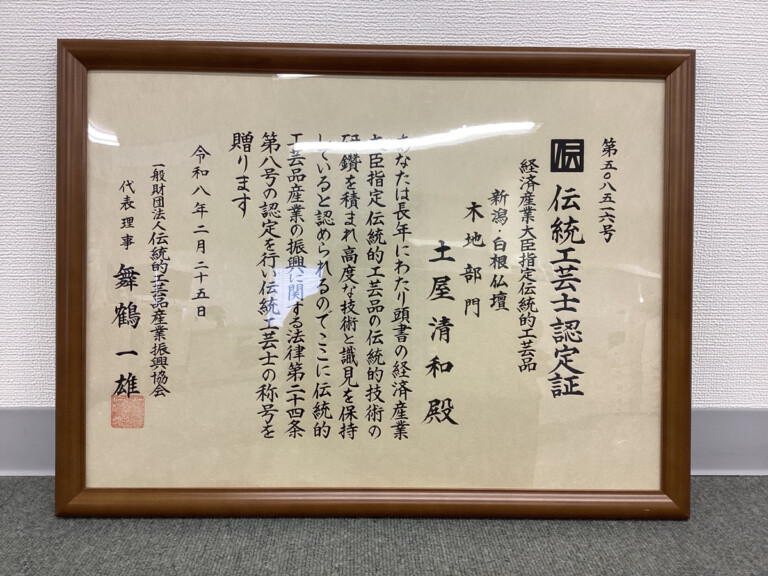 第五〇八五一六号
伝
伝統工芸士認定証
経済産業大臣指定伝統的工芸品
新潟・白根仏壇
木地部門
土屋清和殿
あなたは長年にわたり頭書の経済産業
大臣指定伝統的工芸品の伝統的技術の
研鑽を積まれ高度な技術と識見を保持
していると認められるのでここに伝統的
工芸品産業の振興に関する法律第二十四条
第八号の認定を行い伝統工芸士の称号を
贈ります
令和八年二月二十五日
一般財団法人伝統的工芸品産業振興協会
代表理事 舞鶴一雄